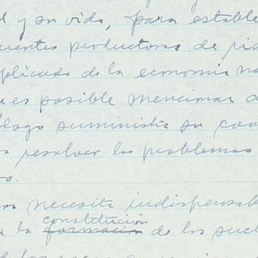 y su vida, para estable
uentes productoras de ri
plicado de la economía na
es posible mencionar a
logo suministra su coo
resolver los problemas
necesita indispensabl
constitución
a la formación de los suel